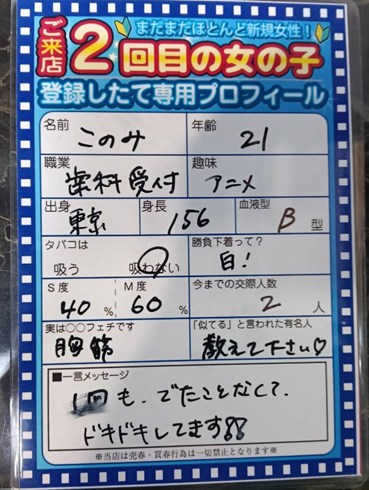 まだまだほとんど新規女性!
ご来店2回目の女の子
登録したて専用プロフィール
名前 このみ 年齢 21
職業 歯科受付 趣味 アニメ
出身 東京 身長 156 血液型 B 型
タバコは 吸う 吸わない 勝負下着って? 白!
S度 40 % M度 60 % 今までの交際人数 2 人
実は○○フェチです 胸筋 「似てる」と言われた有名人 教えて下さい♡
■一言メッセージ
1回も、でたことなくて、
ドキドキしてます!!
※当店は売春・買春行為は一切禁止となります※